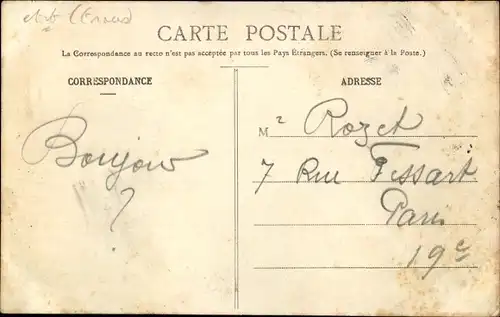 CARTE POSTALE
La Correspondance au recto n'est pas acceptée par tous les Pays Étrangers. (Se renseigner à la Poste.)
CORRESPONDANCE
Bonjour
?
ADRESSE
Mr Rozet
7 Rue Fessart
Paris
19e